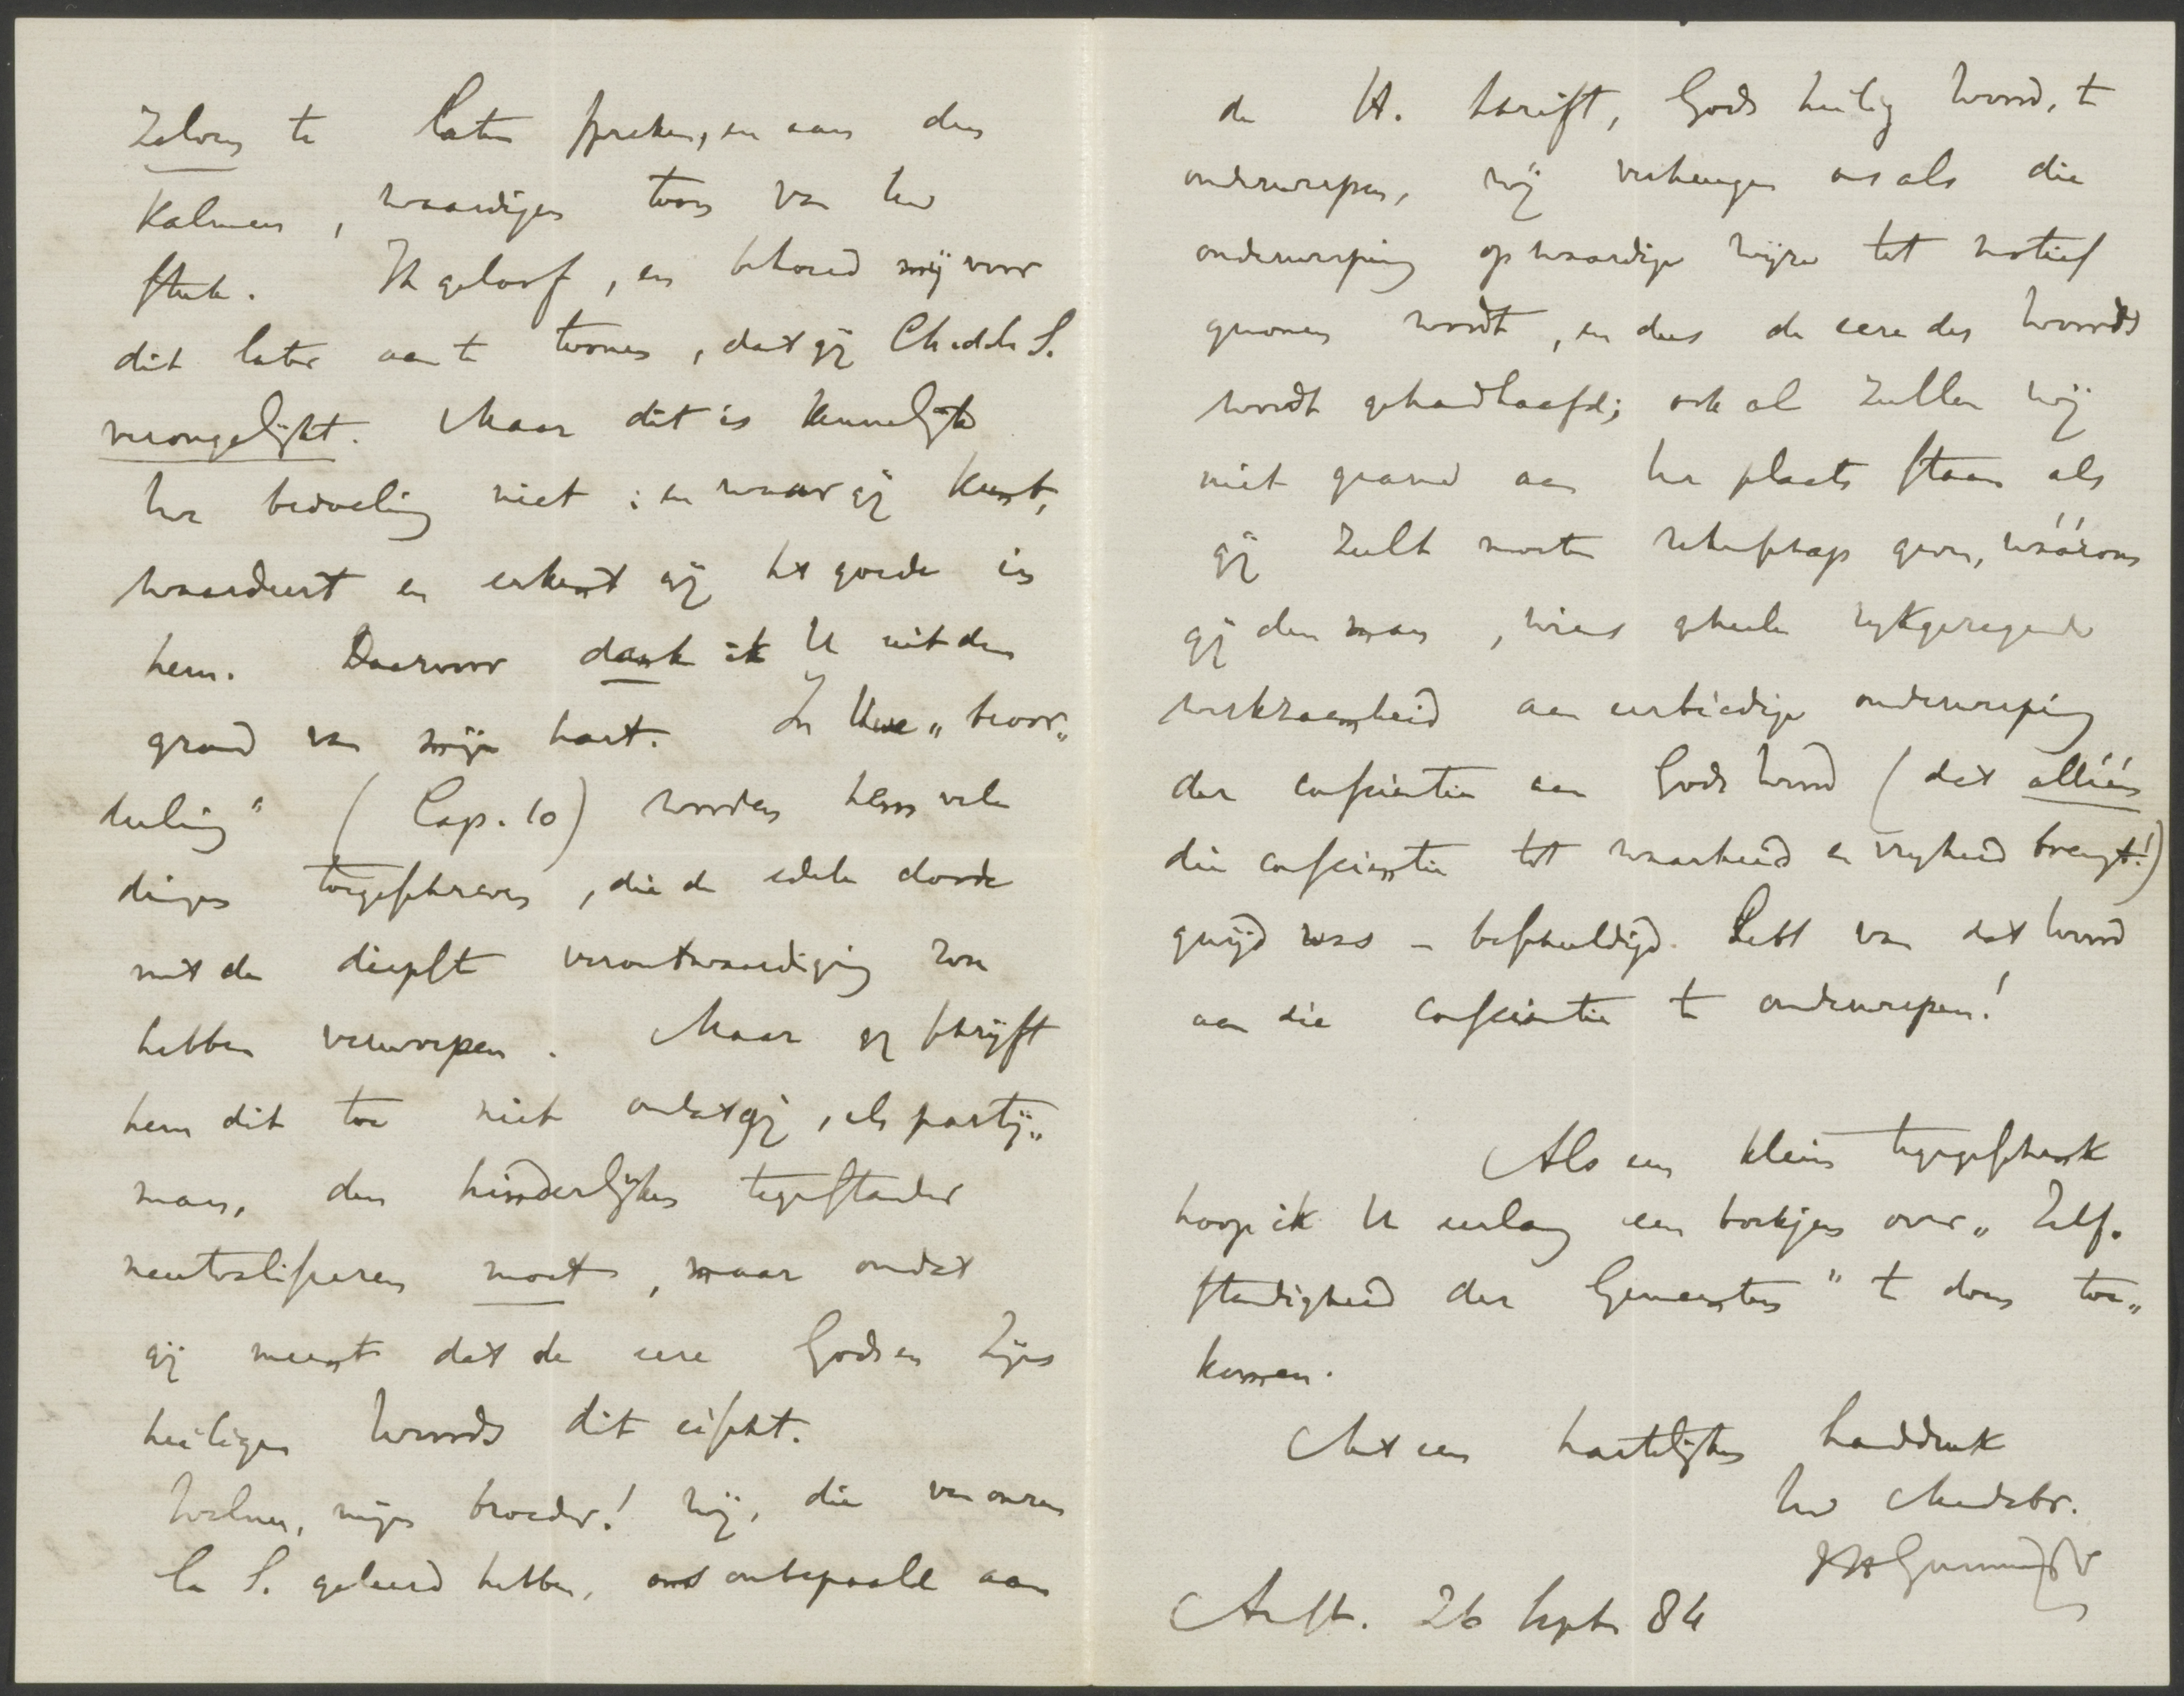 zelven te laten spreken, en aan den
kalmen, waardigen toon van Uw
stuk. Ik geloof, en behoud mij voor
dit later aan te toonen, dat gij Ch. d. l. S.
verongelijkt. Maar dit is kennelijk
Uw bedoeling niet; en waar gij kunt,
waardeert en erkent gij het goede in
hem. Daarvoor dank ik U uit den
grond van mijn hart. In Uwe „beoor„
deeling" (Cap. 10) worden hem vele
dingen toegeschreven, die de edele doode
met de diepste verontwaardiging zou
hebben verworpen. Maar gij schrijft
hem dit toe niet omdat gij, als partij„
man, den hinderlijken tegenstander
neutraliseren moet, maar omdat
gij meent dat de eere Gods en Zijns
heiligen Woords dit eischt.
Welnu, mijn broeder! wij, die van onzen
la S. geleerd hebben, ons onbepaald aan
de H. Schrift, Gods heilig Woord, te
onderwerpen, wij verheugen ons als die
onderwerping op waardige wijze tot motief
genomen wordt, en dus de eere des Woords
wordt gehandhaafd; ook al zullen wij
niet gaarne aan Uw plaats staan als
gij zult moeten rekenschap geven, wáárom
gij den man, wiens geheele rijkgezegende
werkzaamheid aan eerbiedige onderwerping
der conscientie aan Gods Woord (dat alléén
die conscientie tot waarheid en vrijheid brengt!)
gewijd was – beschuldigd hebt van dat Woord
aan die conscientie te onderwerpen!
Als een klein tegengeschenk
hoop ik U eerlang een boekjen over „Zelf„
standigheid der Gemeenten" te doen toe„
komen.
Met een hartelijken handdruk
Uw Medebr.
JHGunning JHz
Amst. 26 Sept. 84